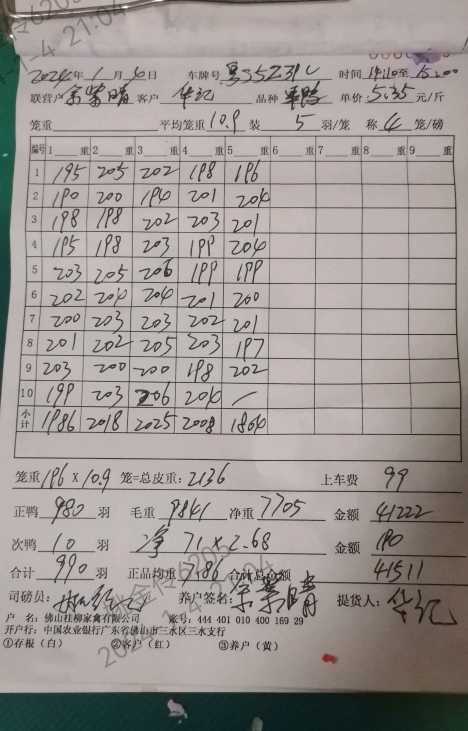 2024年1月4日 车牌号 粤S5Z31L 时间 14:10至15:00
联营户 余紫晴 客户 华记 品种 单价 5.35元/斤
笼重 平均笼重 10.9 装 5 羽/笼 称 4 笼/磅
编号 1 重 2 重 3 重 4 重 5 重 6 重 7 重 8 重 9 重
1 195 205 202 198 196
2 190 200 194 201 204
3 198 198 202 203 201
4 195 198 203 199 204
5 203 205 206 199 199
6 202 204 204 201 200
7 200 203 203 202 201
8 201 202 205 203 197
9 203 200 200 198 202
10 199 203 206 204 —
小计 1986 2018 2025 2008 1804
笼重 196 X 10.9 笼=总皮重: 2136 上车费 99
正鸭 980 羽 毛重 9841 净重 7705 金额 41222
次鸭 10 羽 净 71 X 2.68 金额 190
合计 990 羽 正品均重 7.86 合计总金额 41511
司磅员: 养户签名: 余紫晴 提货人: 华记
户 名: 佛山桂柳家禽有限公司 账号: 444 401 010 400 169 29
开户行: 中国农业银行广东省佛山市三水区三水支行
①存根（白） ②客户（红） ③养户（黄）